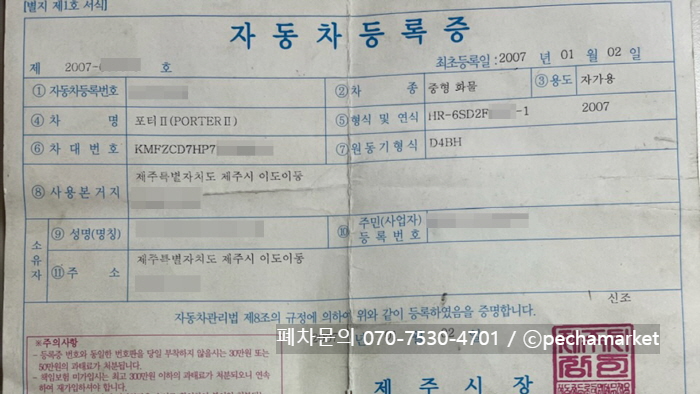 [별지 제1호 서식]
자동차등록증
제 2007- 호
최초등록일 : 2007 년 01 월 02 일
① 자동차등록번호
② 차 종 중형 화물 ③ 용도 자가용
④ 차 명 포터Ⅱ(PORTERⅡ)
⑤ 형식 및 연식 HR-6SD2F -1 2007
⑥ 차 대 번 호 KMFZCD7HP7
⑦ 원동기형식 D4BH
⑧ 사용본거지 제주특별자치도 제주시 이도이동
소유자
⑨ 성명(명칭)
⑩ 주민(사업자)등록번호
⑪ 주 소 제주특별자치도 제주시 이도이동
신조
자동차관리법 제8조의 규정에 의하여 위와 같이 등록하였음을 증명합니다.
년 02
폐차문의 070-7530-4701 / ⓒpechamarket
※주의사항
- 등록증 번호와 동일한 번호판을 당일 부착하지 않을시는 30만원 또는
50만원의 과태료가 처분됩니다.
- 책임보험 미가입시는 최고 300만원 이하의 과태료가 처분되오니 연속
하여 재가입하셔야 합니다.
제 주 시 장